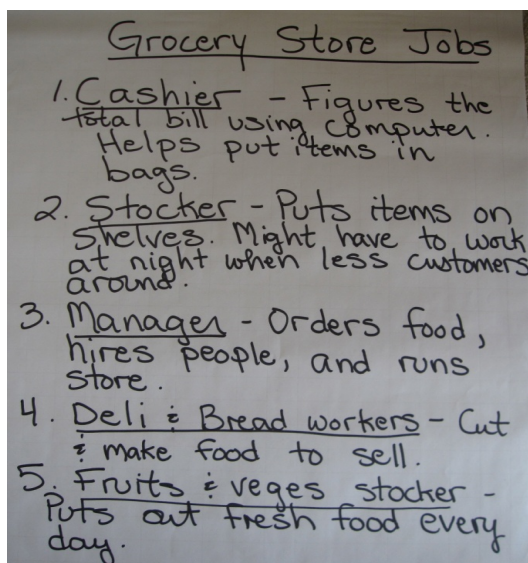 Grocery Store Jobs
1. Cashier - Figures the
total bill using computer.
Helps put items in
bags.
2. Stocker - Puts items on
shelves. Might have to work
at night when less customers
around.
3. Manager - Orders food,
hires people, and runs
store.
4. Deli & Bread workers - Cut
& make food to sell.
5. Fruits & veges stocker -
Puts out fresh food every
day.